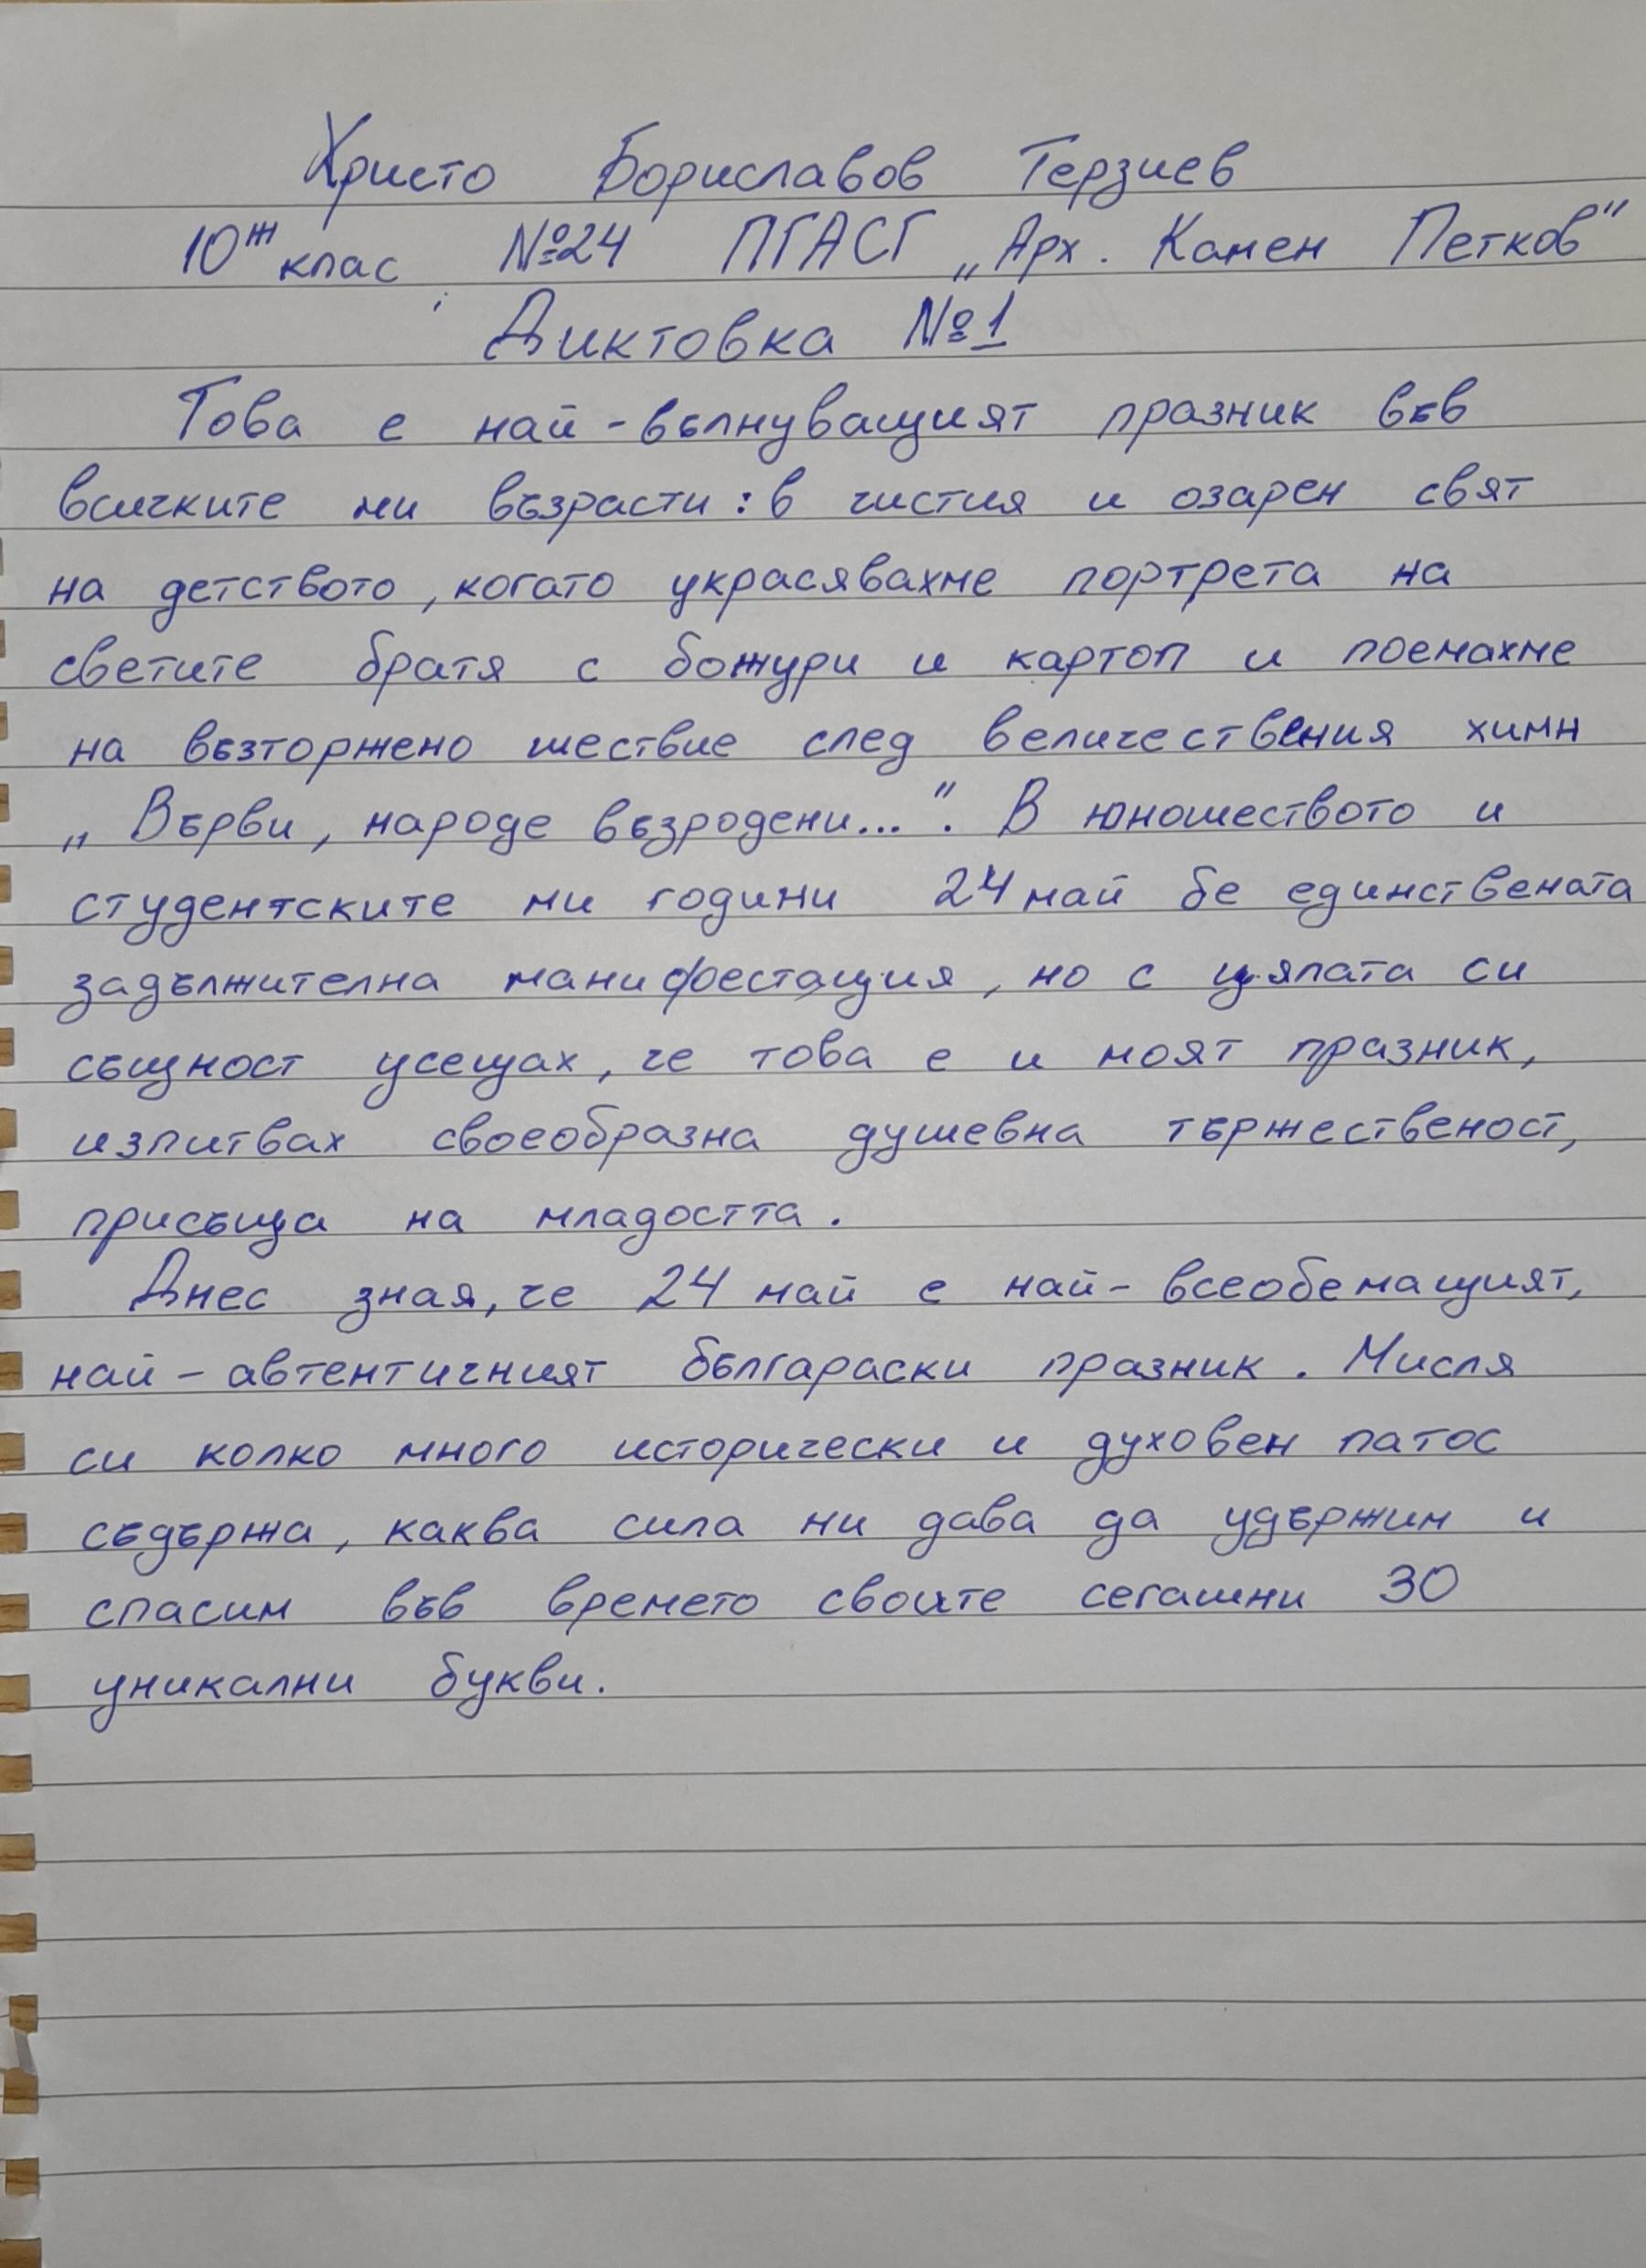 Христо Бориславов Терзиев
10ж клас №24 ПГАСГ „Арх. Камен Петков"
Диктовка №1
Това е най-вълнуващият празник във
всичките ми възрасти: в чистия и озарен свят
на детството, когато украсявахме портрета на
светите братя с божури и картоп и поемахме
на възторжено шествие след величествения химн
„Върви, народе възродени...". В юношеството и
студентските ми години 24 май бе единствената
задължителна манифестация, но с цялата си
същност усещах, че това е и моят празник,
изпитвах своеобразна душевна тържественост,
присъща на младостта.
Днес зная, че 24 май е най-всеобемащият,
най-автентичният българаски празник. Мисля
си колко много исторически и духовен патос
съдържа, каква сила ни дава да удържим и
спасим във времето своите сегашни 30
уникални букви.